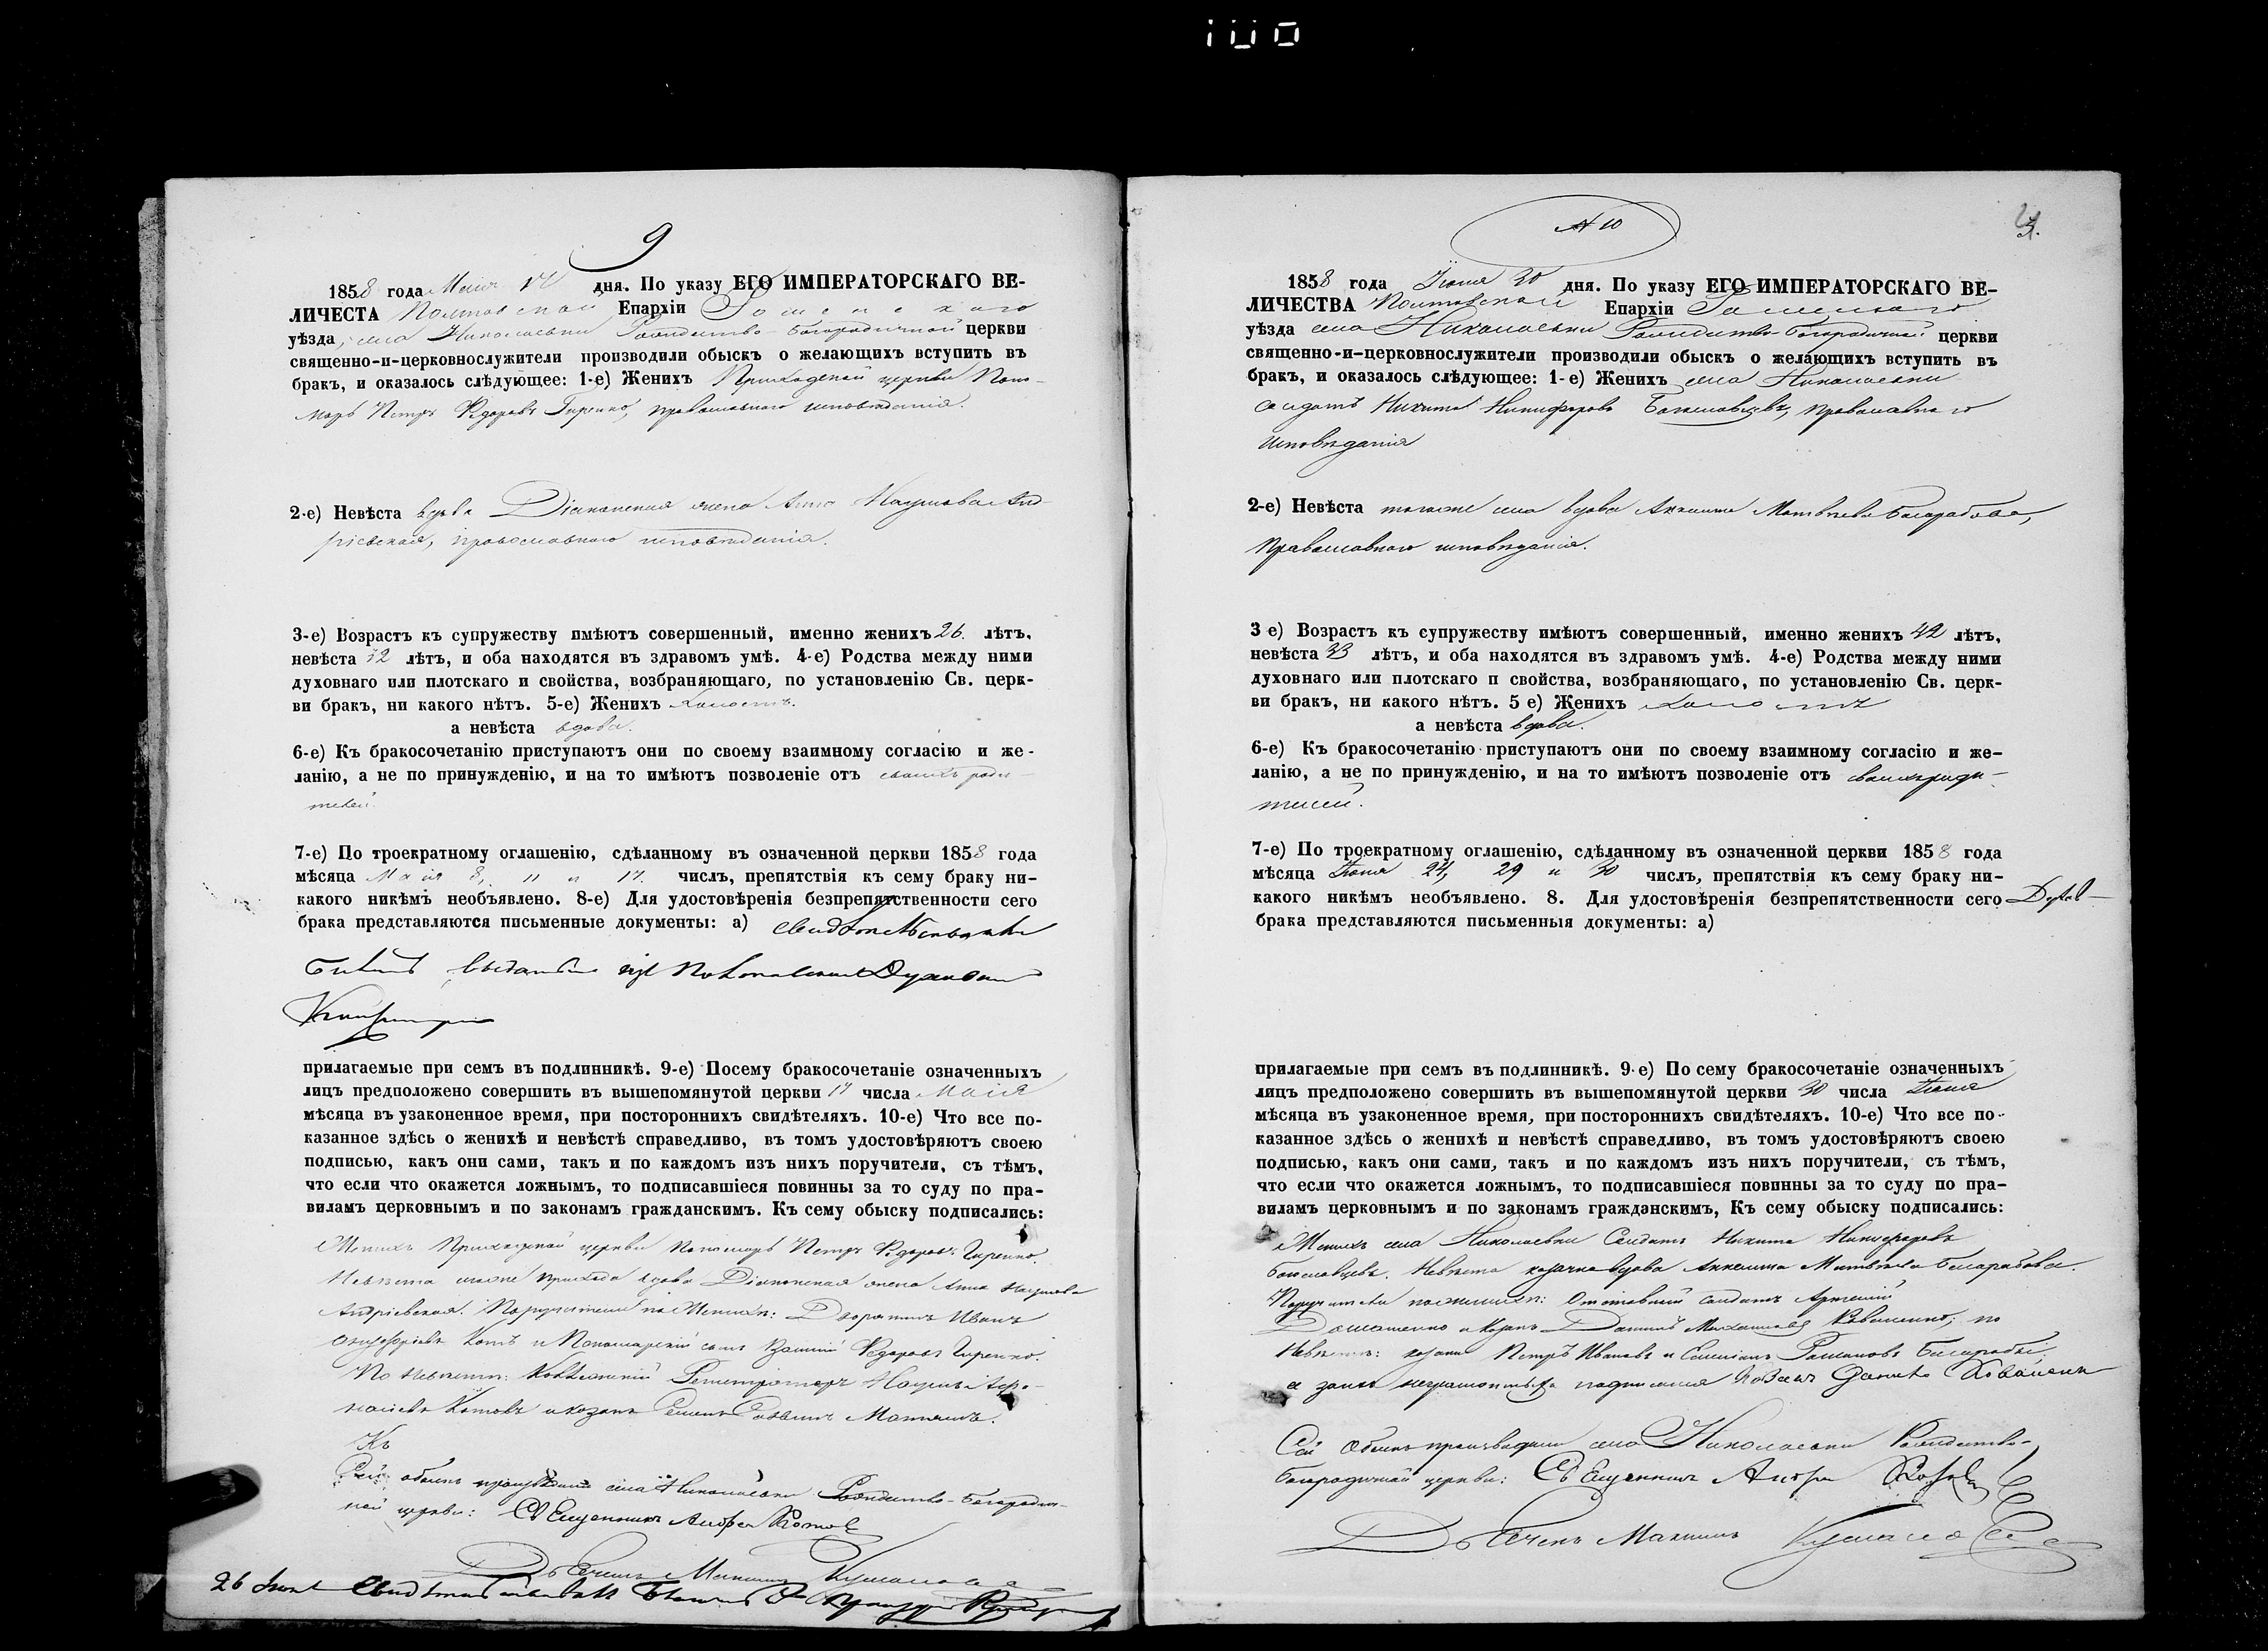 100
9
1858 года Маія 17 дня. По указу ЕГО ИМПЕРАТОРСКАГО ВЕ-
ЛИЧЕСТА Полтавской Епархіи Роменскаго
уѣзда, села Николаевки Рождество-Богородичной церкви
священно-и-церковнослужители производили обыскъ о желающихъ вступить въ
бракъ, и оказалось слѣдующее: 1-е) Женихъ Приходской церкви Поно-
марь Петръ Ѳедоровъ Гиренко, православнаго исповѣданія.
2-е) Невѣста вдова Діаконская жена Анна Наумова Анд-
ріевская, православнаго исповѣданія.
3-е) Возрастъ къ супружеству имѣютъ совершенный, именно женихъ 26 лѣтъ,
невѣста 32 лѣтъ, и оба находятся въ здравомъ умѣ. 4-е) Родства между ними
духовнаго или плотскаго и свойства, возбраняющаго, по установленію Св. церк-
ви бракъ, ни какого нѣтъ. 5-е) Женихъ холостъ.
а невѣста вдова.
6-е) Къ бракосочетанію приступаютъ они по своему взаимному согласію и же-
ланію, а не по принужденію, и на то имѣютъ позволеніе отъ своихъ роди-
телей.
7-е) По троекратному оглашенію, сдѣланному въ означенной церкви 1858 года
мѣсяца Маія 8, 11 и 17. числъ, препятствія къ сему браку ни-
какого никѣмъ необъявлено. 8-е) Для удостовѣренія безпрепятственности сего
брака представляются письменные документы: а)
Билетъ
прилагаемые при семъ въ подлинникѣ. 9-е) Посему бракосочетаніе означенныхъ
лицъ предположено совершить въ вышепомянутой церкви 17 числа Маія
мѣсяца въ узаконенное время, при постороннихъ свидѣтеляхъ. 10-е) Что все по-
казанное здѣсь о женихѣ и невѣстѣ справедливо, въ томъ удостовѣряютъ своею
подписью, какъ они сами, такъ и по каждомъ изъ нихъ поручители, съ тѣмъ,
что если что окажется ложнымъ, то подписавшіеся повинны за то суду по пра-
виламъ церковнымъ и по законамъ гражданскимъ. Къ сему обыску подписались:
Женихъ Приходской церкви пономарь Петръ Ѳедоровъ Гиренко.
Невѣста вдова Діаконская жена Анна Наумова
Андріевская. Поручители по Женихѣ: Дворянинъ Иванъ
Котъ и Пономарскій сынъ Ѳедоровъ Гиренко.
По невѣстѣ: Регистраторъ Наумъ
Котовъ и козакъ Семенъ Матяшъ.
Къ
Сей обыскъ производили села Николаевки Рождество-Богородич-
ной церкви: Священникъ Андрей Котов
Дьячекъ Максимъ
26
№ 10
1858 года Іюня 30 дня. По указу ЕГО ИМПЕРАТОРСКАГО ВЕ-
ЛИЧЕСТВА Полтавской Епархіи Роменскаго
уѣзда села Николаевки Рождество-Богородичной церкви
священно-и-церковнослужители производили обыскъ о желающихъ вступить въ
бракъ, и оказалось слѣдующее: 1-е) Женихъ села Николаевки
солдатъ Никита Никифоровъ Богословцевъ, православнаго
исповѣданія
2-е) Невѣста тогоже села вдова Матвѣева
Православнаго исповѣданія.
3 е) Возрастъ къ супружеству имѣютъ совершенный, именно женихъ 42 лѣтъ,
невѣста 33 лѣтъ, и оба находятся въ здравомъ умѣ. 4-е) Родства между ними
духовнаго или плотскаго п свойства, возбраняющаго, по установленію Св. церк-
ви бракъ, ни какого нѣтъ. 5 е) Женихъ холостъ
а невѣста вдова.
6-е) Къ бракосочетанію приступаютъ они по своему взаимному согласію и же-
ланію, а не по принужденію, и на то имѣютъ позволеніе отъ своихъ роди-
телей.
7-е) По троекратному оглашенію, сдѣланному въ означенной церкви 1858 года
мѣсяца Іюня 24, 29 и 30 числъ, препятствія къ сему браку ни-
какого никѣмъ необъявлено. 8. Для удостовѣренія безпрепятственности сего
брака представляются письменныя документы: а)
прилагаемые при семъ въ подлинникѣ. 9-е) По сему бракосочетаніе означенныхъ
лицъ предположено совершить въ вышепомянутой церкви 30 числа Іюня
мѣсяца въ узаконенное время, при постороннихъ свидѣтеляхъ. 10-е) Что все по-
казанное здѣсь о женихѣ и невѣстѣ справедливо, въ томъ удостовѣряютъ своею
подписью, какъ они сами, такъ и по каждомъ изъ нихъ поручители, съ тѣмъ,
что если что окажется ложнымъ, то подписавшіеся повинны за то суду по пра-
виламъ церковнымъ и по законамъ гражданскимъ, Къ сему обыску подписались:
Женихъ села Николаевки Солдатъ Никита Никифоровъ
Богословцевъ. Невѣста козачка вдова Матвѣева
Поручители по женихѣ: Отставной солдатъ
и Козакъ Даніилъ по
Невѣстѣ: козаки Петръ Ивановъ и Романовъ
а за них неграмотныхъ подписался Козакъ Данило
Сей обыскъ производили села Николаевки Рождество-
Богородичной церкви: Священникъ Андрей
Дьячекъ Максимъ